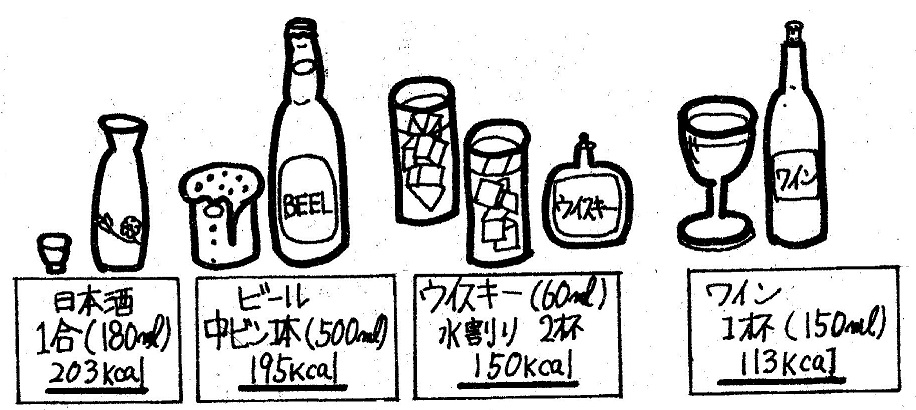 BEEL
ウイスキー
ワイン
日本酒
1合(180ml)
203kcal
ビール
中ビン1本(500ml)
195kcal
ウイスキー(60ml)
水割り 2杯
150kcal
ワイン
1杯(150ml)
113kcal